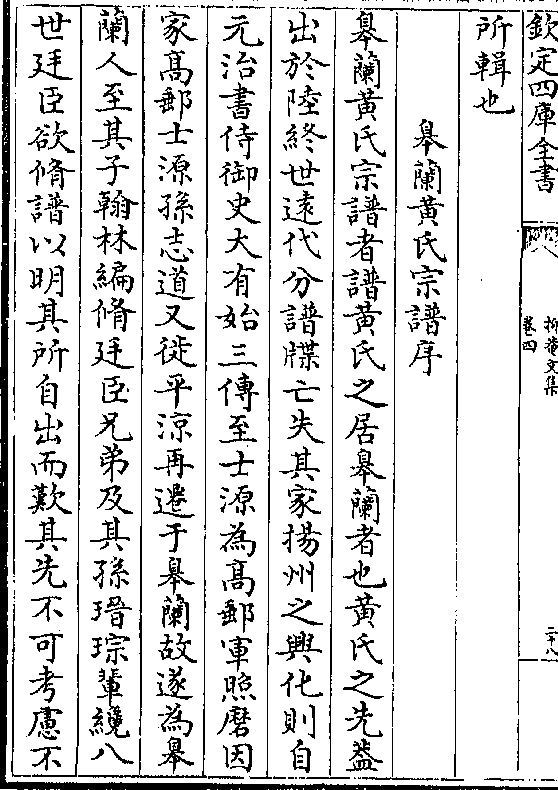 欽定四庫全書
抑菴文集
卷四
二十八
所輯也
臯蘭黃氏宗譜序
臯蘭黃氏宗譜者譜黃氏之居臯蘭者也黃氏之先蓋
出於陸終世遠代分譜牒亡失其家揚州之興化則自
元治書侍御史大有始三傳至士源為髙郵軍照磨因
家髙郵士源孫志道又徙平涼再遷于臯蘭故遂為臯
蘭人至其子翰林編脩廷臣兄弟及其孫瑨琮輩纔八
世廷臣欲脩譜以明其所自出而歎其先不可考慮不